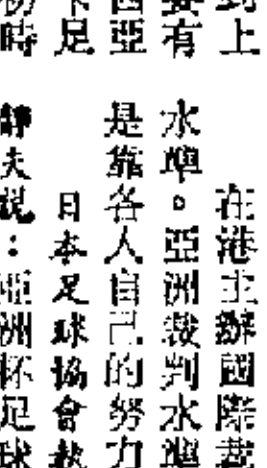 上
要有
西亞
足
時
在港主辦國際裁
水準。亞洲裁判水準
是靠各人自己的努力
日本足球協會執
靜夫説：亞洲杯足球